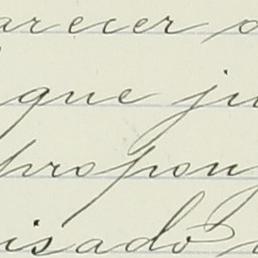 arecer o
que ju
propon
isado